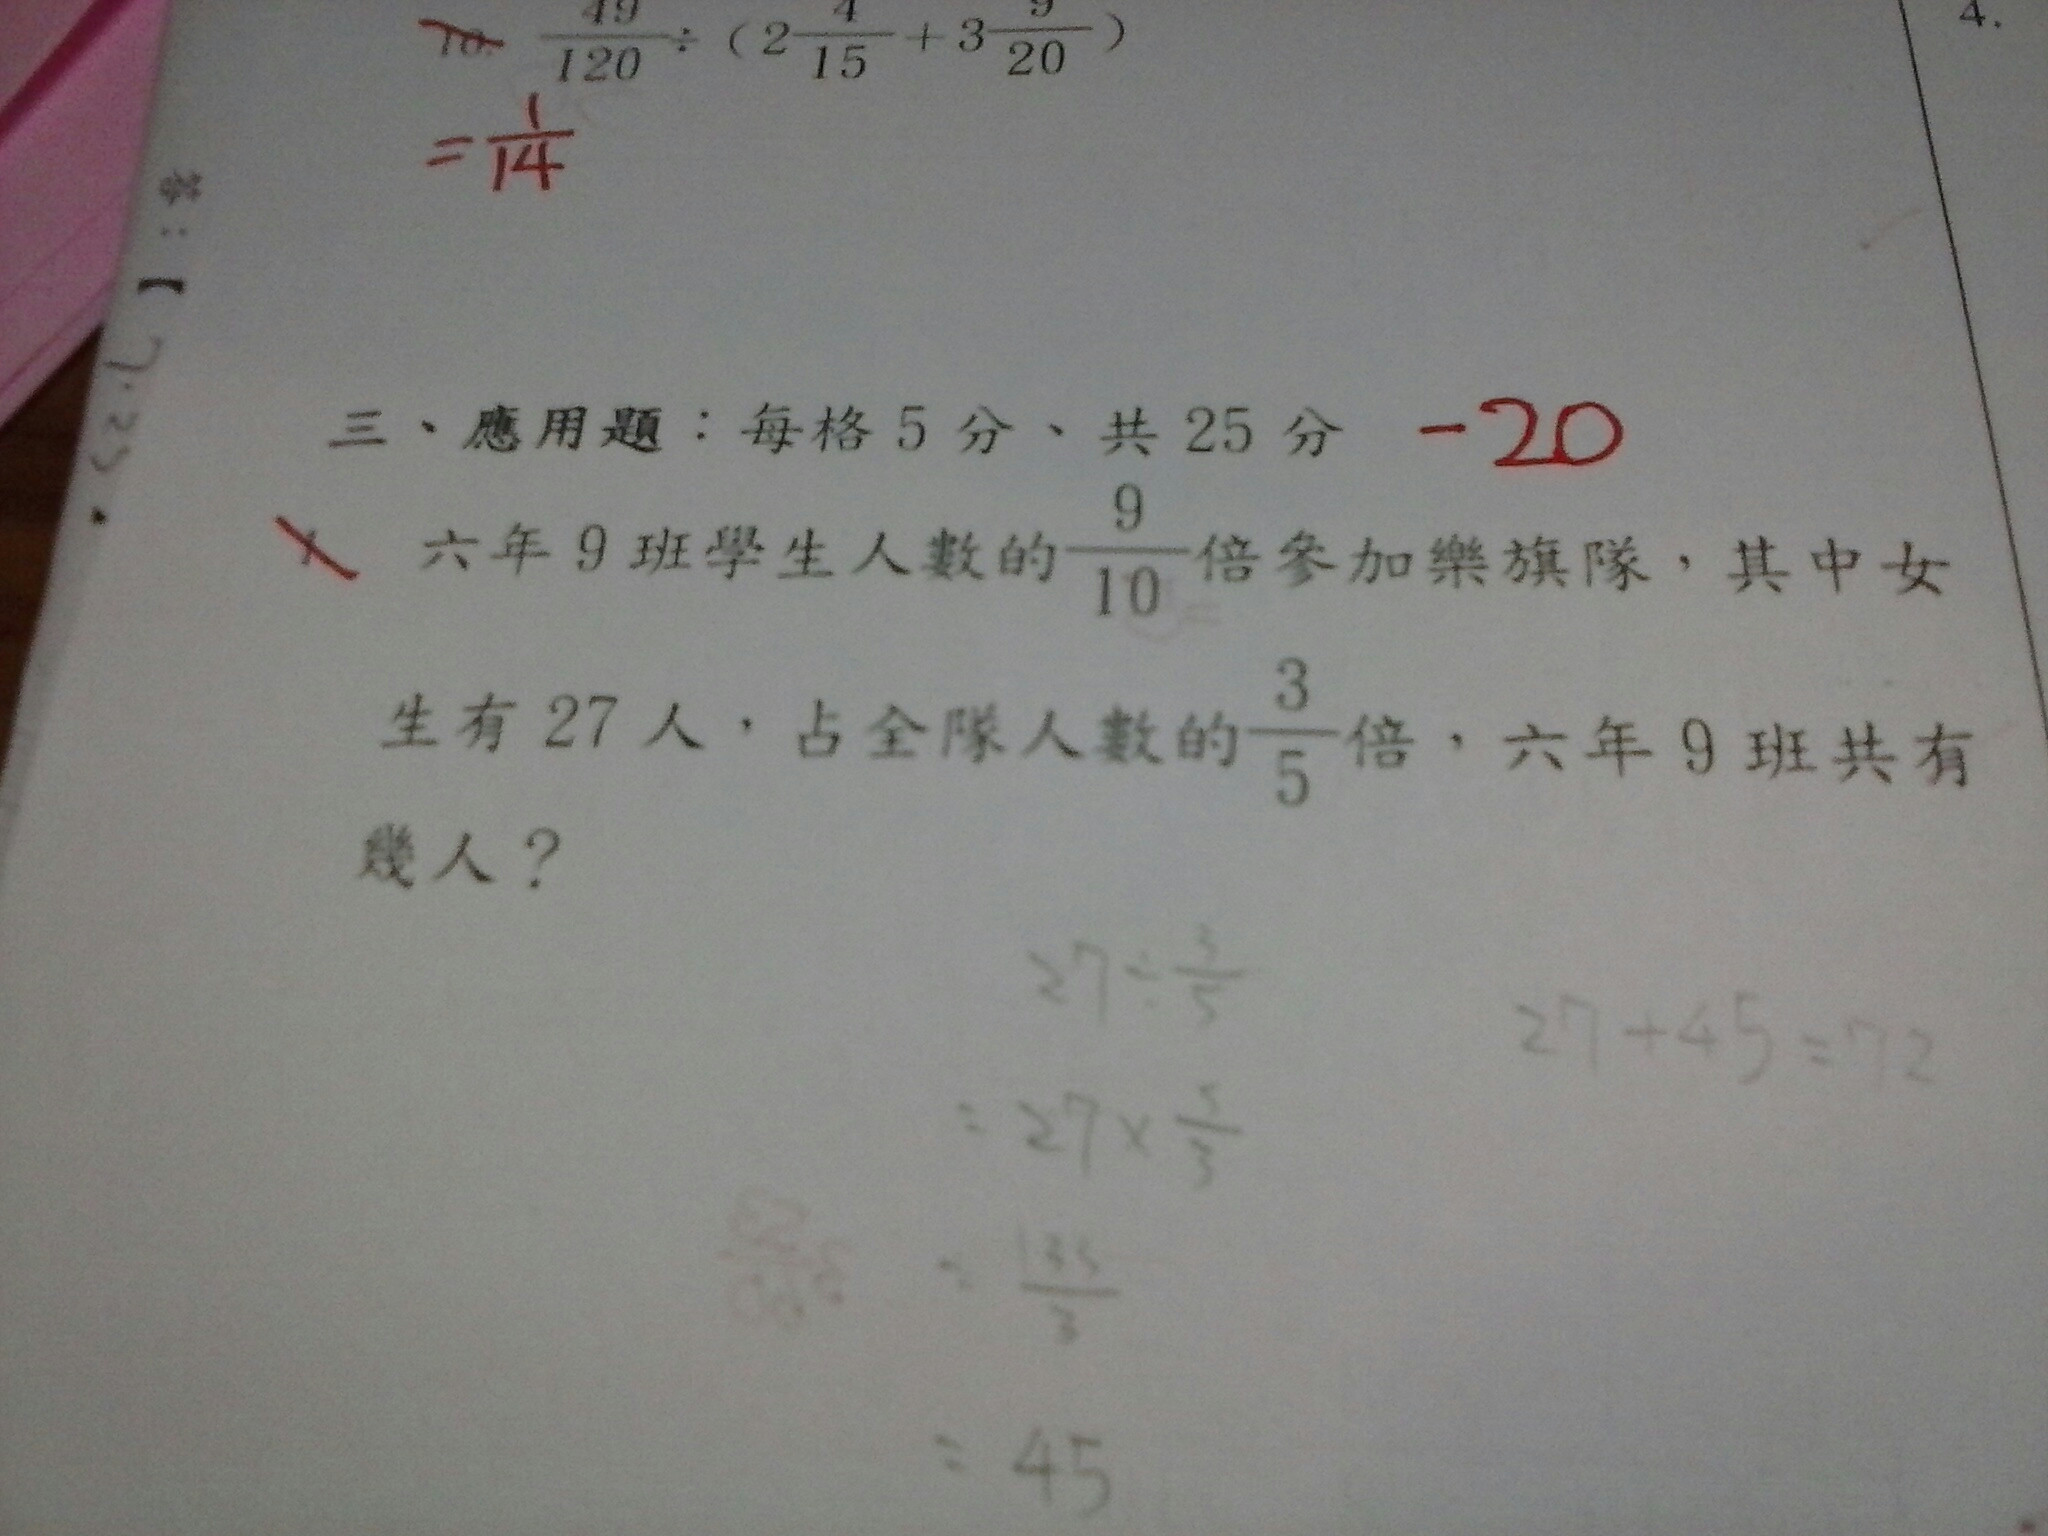 10. 49/120 ÷ ( 2 4/15 + 3 9/20 )
= 1/14
4.
答：【
三、應用題：每格 5 分、共 25 分 -20
六年 9 班學生人數的 9/10 倍參加樂旗隊，其中女
生有 27 人，占全隊人數的 3/5 倍，六年 9 班共有
幾人？
27 ÷ 3/5
= 27 × 5/3
= 135/3
= 45
27 + 45 = 72